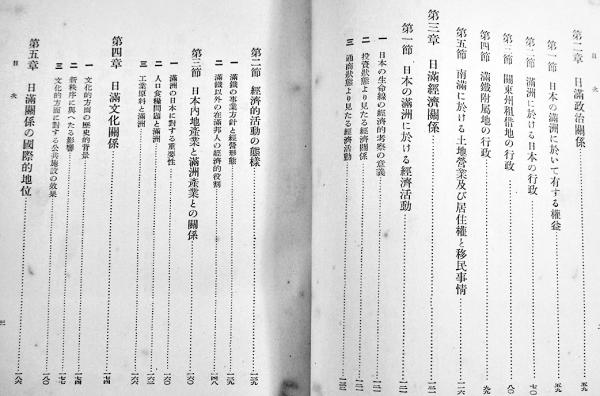 目次
第二章 日滿政治關係…五九
第一節 日本の滿洲に於いて有する權益…五九
第二節 滿洲に於ける日本の行政…七〇
第三節 關東州租借地の行政…八〇
第四節 滿鐵附屬地の行政…九九
第五節 南滿に於ける土地營業及び居住權と移民事情…一一六
第三章 日滿經濟關係…一二一
第一節 日本の滿洲に於ける經濟活動…一二一
一 日本の生命線の經濟的考察の意義…一二一
二 投資狀態より見たる經濟關係…一二二
三 通商狀態より見たる經濟活動
第二節 經濟的活動の態樣…一三九
一 滿鐵の事業方針と經營形態…一三九
二 滿鐵以外の在滿邦人の經濟的役割…一四八
第三節 日本內地產業と滿洲產業との關係…一六〇
一 滿洲の日本に對する重要性…一六〇
二 人口食糧問題と滿洲…一六二
三 工業原料と滿洲…一六六
第四章 日滿文化關係…一七四
一 文化的方面の歷史的背景…一七四
二 新秩序に與へたる影響…一七七
三 文化的方面に對する公共施設の效果…一八〇
第五章 日滿關係の國際的地位…一八六
目次
三